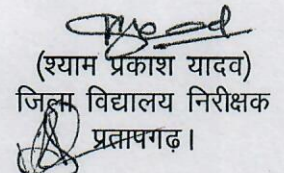 (श्याम प्रकाश यादव)
जिला विद्यालय निरीक्षक
प्रतापगढ़।